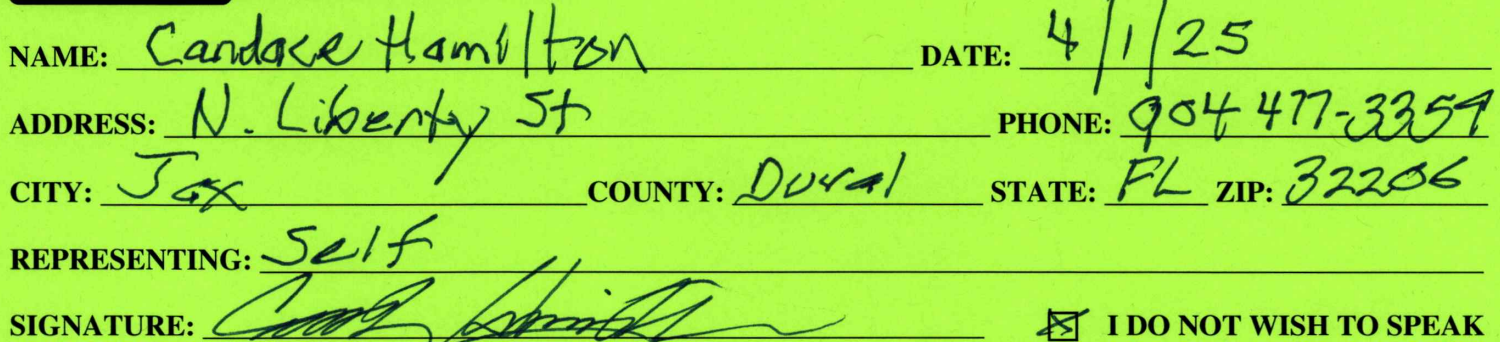 NAME: Candace Hamilton DATE: 4/1/25
ADDRESS: N. Liberty St PHONE: 904 477-3359
CITY: Jax COUNTY: Duval STATE: FL ZIP: 32206
REPRESENTING: Self
SIGNATURE: I DO NOT WISH TO SPEAK